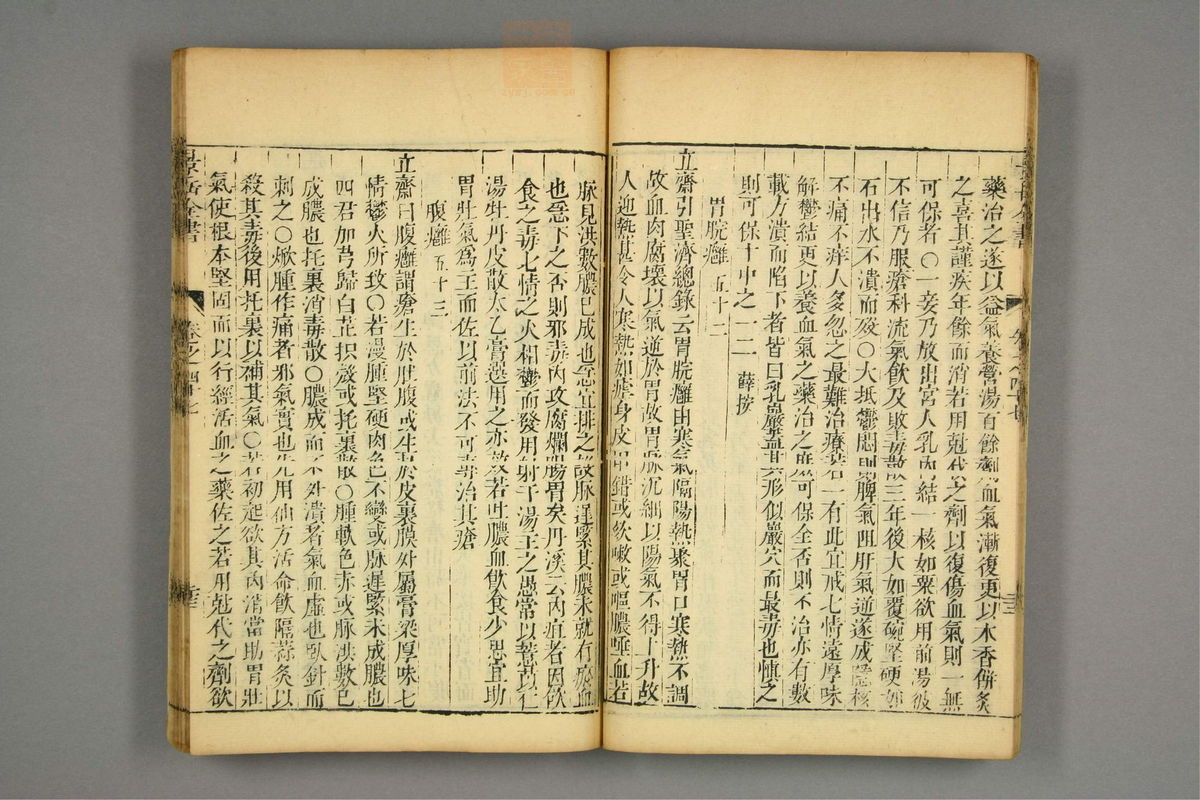 藥治之遂以益氣養營湯百餘劑血氣漸復更以木香餅灸
之喜其謹疾年餘而消若用尅伐之劑以復傷血氣則一無
可保者○一妾乃放出宮人乳內結一核如粟欲用前湯彼
不信乃服瘡科流氣飲及敗毒散三年後大如覆碗堅硬如
石出水不潰而歿○大抵鬱悶則脾氣阻肝氣逆遂成隱核
不痛不癢人多忽之最難治療若一有此宜戒七情遠厚味
解鬱結更以養血氣之藥治之庶可保全否則不治亦有數
載方潰而陷下者皆曰乳巖蓋其形似巖穴而最毒也慎之
則可保十中之一二 薛按
胃脘癰 五十二
立齋引聖濟總錄云胃脘癰由寒氣隔陽熱聚胃口寒熱不調
故血肉腐壞以氣逆於胃故胃脈沉細以陽氣不得上升故
人迎熱甚令人寒熱如瘧身皮甲錯或欬嗽或嘔膿唾血若
脈見洪數膿已成也急宜排之設脈遲緊其膿未就有瘀血
也急下之否則邪毒內攻腐爛腸胃矣丹溪云內疽者因飲
食之毒七情之火相鬱而發用射干湯主之愚常以薏苡仁
湯牡丹皮散太乙膏選用之亦效若吐膿血飲食少思宜助
胃壯氣爲主而佐以前法不可專治其瘡
腹癰 五十三
立齋曰腹癰謂瘡生於肚腹或生於皮裏膜外屬膏粱厚味七
情鬱火所致○若漫腫堅硬肉色不變或脉遲緊未成膿也
四君加芎歸白芷枳殼或托裏散○腫軟色赤或脉洪數已
成膿也托裏消毒散○膿成而不外潰者氣血虛也臥針而
刺之○焮腫作痛者邪氣實也先用仙方活命飲隔蒜灸以
殺其毒後用托裏以補其氣○若初起欲其內消當助胃壯
氣使根本堅固而以行經活血之藥佐之若用尅伐之劑欲
景岳全書
卷之四十七